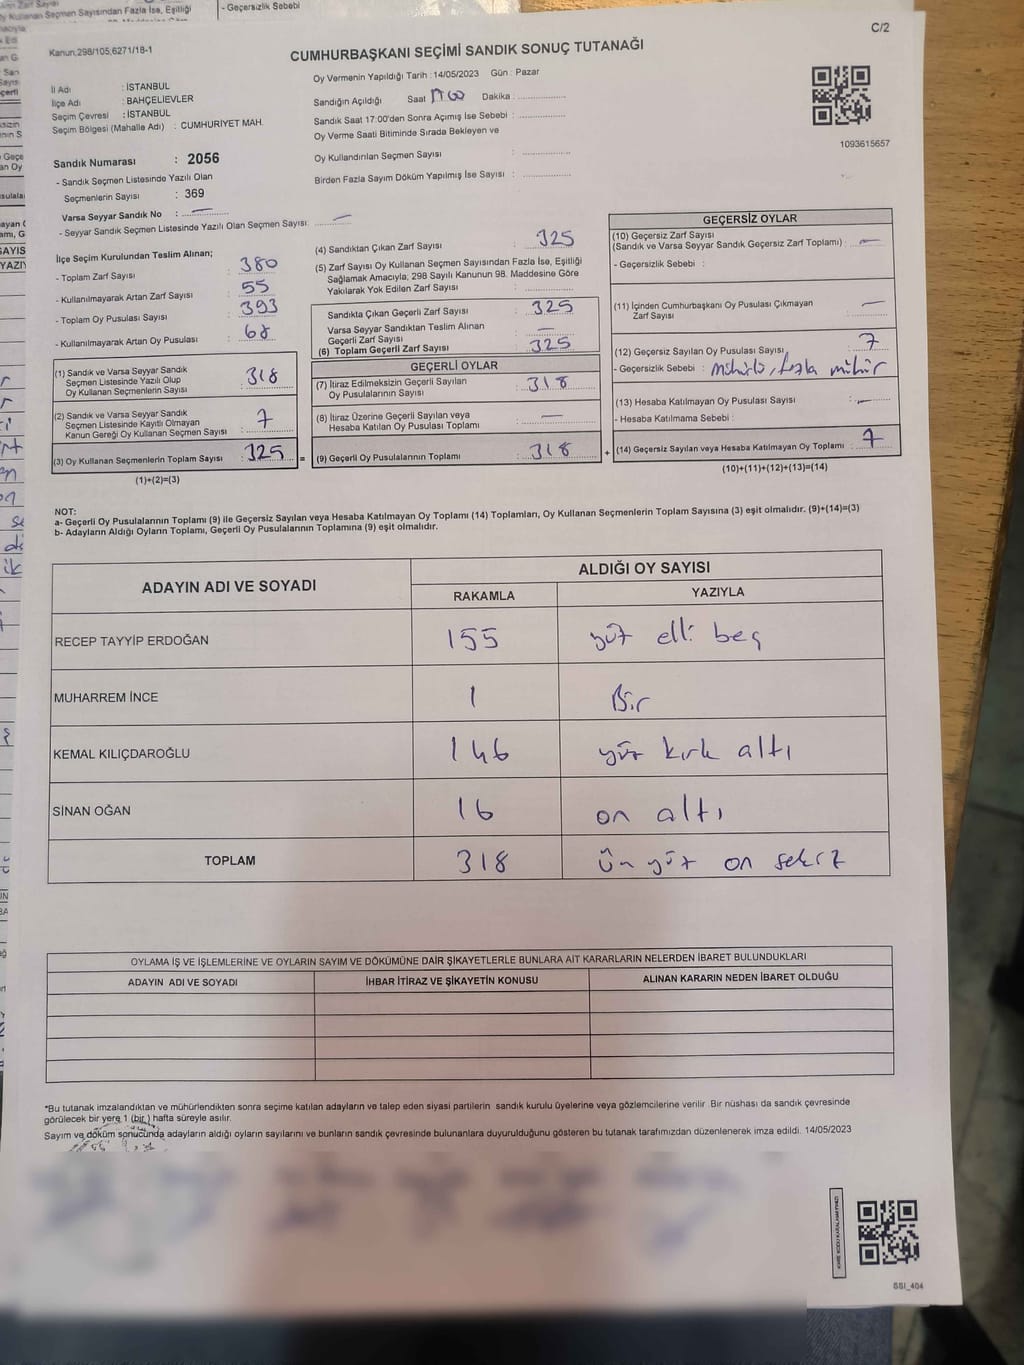 C/2
Kanun,298/105,6271/18-1
CUMHURBAŞKANI SEÇİMİ SANDIK SONUÇ TUTANAĞI
İl Adı : İSTANBUL
İlçe Adı : BAHÇELİEVLER
Seçim Çevresi : İSTANBUL
Seçim Bölgesi (Mahalle Adı) : CUMHURİYET MAH.
Oy Vermenin Yapıldığı Tarih : 14/05/2023 Gün : Pazar
Sandığın Açıldığı Saat Dakika :
Sandık Saat 17:00'den Sonra Açımış İse Sebebi :
Oy Verme Saati Bitiminde Sırada Bekleyen ve
Oy Kullandırılan Seçmen Sayısı :
Birden Fazla Sayım Döküm Yapılmış İse Sayısı :
1093615657
Sandık Numarası : 2056
- Sandık Seçmen Listesinde Yazılı Olan
Seçmenlerin Sayısı : 369
Varsa Seyyar Sandık No : —
- Seyyar Sandık Seçmen Listesinde Yazılı Olan Seçmen Sayısı: —
İlçe Seçim Kurulundan Teslim Alınan;
- Toplam Zarf Sayısı : 380
- Kullanılmayarak Artan Zarf Sayısı : 55
- Toplam Oy Pusulası Sayısı : 393
- Kullanılmayarak Artan Oy Pusulası : 68
(1) Sandık ve Varsa Seyyar Sandık
Seçmen Listesinde Yazılı Olup
Oy Kullanan Seçmenlerin Sayısı : 318
(2) Sandık ve Varsa Seyyar Sandık
Seçmen Listesinde Kayıtlı Olmayan
Kanun Gereği Oy Kullanan Seçmen Sayısı : 7
(3) Oy Kullanan Seçmenlerin Toplam Sayısı : 325 =
(1)+(2)=(3)
(4) Sandıktan Çıkan Zarf Sayısı : 325
(5) Zarf Sayısı Oy Kullanan Seçmen Sayısından Fazla İse, Eşitliği
Sağlamak Amacıyla, 298 Sayılı Kanunun 98. Maddesine Göre
Yakılarak Yok Edilen Zarf Sayısı :
Sandıkta Çıkan Geçerli Zarf Sayısı : 325
Varsa Seyyar Sandıktan Teslim Alınan
Geçerli Zarf Sayısı : —
(6) Toplam Geçerli Zarf Sayısı : 325
GEÇERLİ OYLAR
(7) İtiraz Edilmeksizin Geçerli Sayılan
Oy Pusulasının Sayısı : 318
(8) İtiraz Üzerine Geçerli Sayılan veya
Hesaba Katılan Oy Pusulası Toplamı : —
(9) Geçerli Oy Pusulalarının Toplamı : 318 +
GEÇERSİZ OYLAR
(10) Geçersiz Zarf Sayısı
(Sandık ve Varsa Seyyar Sandık Geçersiz Zarf Toplamı) : —
- Geçersizlik Sebebi :
(11) İçinden Cumhurbaşkanı Oy Pusulası Çıkmayan
Zarf Sayısı : —
(12) Geçersiz Sayılan Oy Pusulası Sayısı : 7
- Geçersizlik Sebebi : Mühürlü, fazla mühür
(13) Hesaba Katılmayan Oy Pusulası Sayısı : —
- Hesaba Katılmama Sebebi :
(14) Geçersiz Sayılan veya Hesaba Katılmayan Oy Toplamı : 7
(10)+(11)+(12)+(13)=(14)
NOT:
a- Geçerli Oy Pusulalarının Toplamı (9) ile Geçersiz Sayılan veya Hesaba Katılmayan Oy Toplamı (14) Toplamları, Oy Kullanan Seçmenlerin Toplam Sayısına (3) eşit olmalıdır. (9)+(14)=(3)
b- Adayların Aldığı Oyların Toplamı, Geçerli Oy Pusulalarının Toplamına (9) eşit olmalıdır.
ADAYIN ADI VE SOYADI
ALDIĞI OY SAYISI
RAKAMLA YAZIYLA
RECEP TAYYİP ERDOĞAN 155 yüz elli beş
MUHARREM İNCE 1 Bir
KEMAL KILIÇDAROĞLU 146 yüz kırk altı
SİNAN OĞAN 16 on altı
TOPLAM 318 Üç yüz on sekiz
OYLAMA İŞ VE İŞLEMLERİNE VE OYLARIN SAYIM VE DÖKÜMÜNE DAİR ŞİKAYETLERLE BUNLARA AİT KARARLARIN NELERDEN İBARET BULUNDUKLARI
ADAYIN ADI VE SOYADI İHBAR İTİRAZ VE ŞİKAYETİN KONUSU ALINAN KARARIN NEDEN İBARET OLDUĞU
*Bu tutanak imzalandıktan ve mühürlendikten sonra seçime katılan adayların ve talep eden siyasi partilerin sandık kurulu üyelerine veya gözlemcilerine verilir .Bir nüshası da sandık çevresinde
görülecek bir yere 1 (bir ) hafta süreyle asılır.
Sayım ve döküm sonucunda adayların aldığı oyların sayılarını ve bunların sandık çevresinde bulunanlara duyurulduğunu gösteren bu tutanak tarafımızdan düzenlenerek imza edildi. 14/05/2023
SSI_404